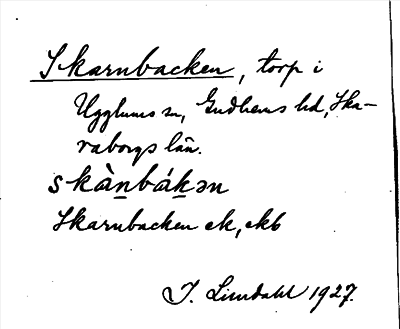 Skarnbacken, torp i
Ugglums sn, Gudhems hd, Ska-
raborgs län.
skànbákən
Skarnbacken ek, ekb
J. Lindahl 1927.